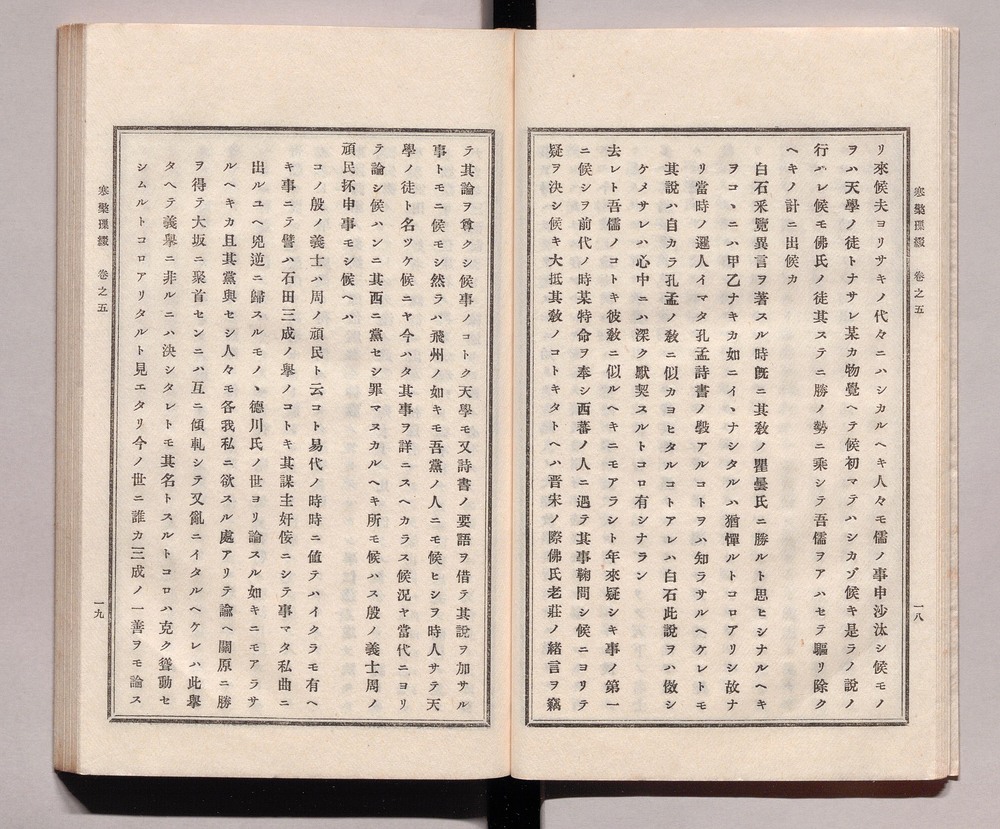 寒檠璅綴　卷之五
一八
リ來候夫ヨリサキノ代々ニハシカルヘキ人々モ儒ノ事申沙汰シ候モノ
ヲハ天學ノ徒トナサレ某カ物覺ヘテ候初マテハシカゾ候キ是ラノ說ノ
行ハレ候モ佛氏ノ徒其ステニ勝ノ勢ニ乘シテ吾儒ヲアハセテ驅リ除ク
ヘキノ計ニ出候カ
白石釆覽異言ヲ著スル時旣ニ其敎ノ瞿曇氏ニ勝ルト思ヒシナルヘキ
ヲコヽニハ甲乙ナキカ如ニイヽナシタルハ猶憚ルトコロアリシ故ナ
リ當時ノ邏人イマタ孔孟詩書ノ敎アルコトヲハ知ラサルヘケレトモ
其說ハ自カラ孔孟ノ敎ニ似カヨヒタルコトアレハ白石此說ヲハ儆シ
ケメサレハ心中ニハ深ク默契スルトコロ有シナラン
去レト吾儒ノコトキ彼敎ニ似ルヘキニモアラシト年來疑シキ事ノ第一
ニ候シヲ前代ノ時某特命ヲ奉シ西蕃ノ人ニ遇テ其事鞫問シ候ニヨリテ
疑ヲ決シ候キ大抵其敎ノコトキタトヘハ晋宋ノ際佛氏老莊ノ緒言ヲ竊
テ其論ヲ尊クシ候事ノコトク天學モ又詩書ノ要語ヲ借テ其說ヲ加サル
事トモニ候モシ然ラハ飛州ノ如キモ吾黨ノ人ニモ候ヒシヲ時人サテ天
學ノ徒ト名ツケ候ニヤ今ハタ其事ヲ詳ニスヘカラス候況ヤ當代ニヨリ
テ論シ候ハンニ其西ニ黨セシ罪マヌカルヘキ所モ候ハス殷ノ義士周ノ
頑民抔申事モシ候ヘハ
コノ般ノ義士ハ周ノ頑民ト云コト易代ノ時時ニ値テハイクラモ有ヘ
キ事ニテ譬ハ石田三成ノ舉ノコトキ其謀主奸侫ニシテ事マタ私曲ニ
出ルユヘ兇逆ニ歸スルモノヽ德川氏ノ世ヨリ論スル如キニモアラサ
ルヘキカ且其黨與セシ人々モ各我私ニ欲スル處アリテ諭ヘ關原ニ勝
ヲ得テ大坂ニ聚首センニハ互ニ傾軋シテ又亂ニイタルヘケレハ此擧
タヘテ義擧ニ非ルニハ決シタレトモ其名トスルトコロハ克ク聳動セ
シムルトコロアリタルト見エタリ今ノ世ニ誰カ三成ノ一善ヲモ論ス
寒檠璅綴　卷之五
一九